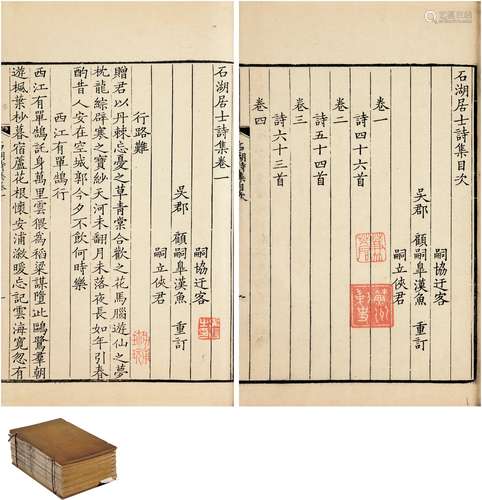 石湖居士詩集目次
嗣協迂客
吳郡 顧嗣皐漢魚 重訂
嗣立俠君
卷一
詩四十六首
卷二
詩五十四首
卷三
詩六十三首
卷四
石湖詩集目次
石湖居士詩集卷一
嗣協迂客
吳郡 顧嗣皐漢魚 重訂
嗣立俠君
行路難
贈君以丹棘忘憂之草青棠合歡之花馬腦遊仙之夢
枕龍綜辟寒之寶紗天河未翻月未落夜長如年引春
酌昔人安在空城郭今夕不飲何時樂
西江有單鵠行
西江有單鵠託身萬里雲猥為稻粱謀墮此鷗鷺羣朝
遊楓葉杪暮宿蘆花根懷安浦漵暖忘記雲海寬忽有
石湖詩集卷一